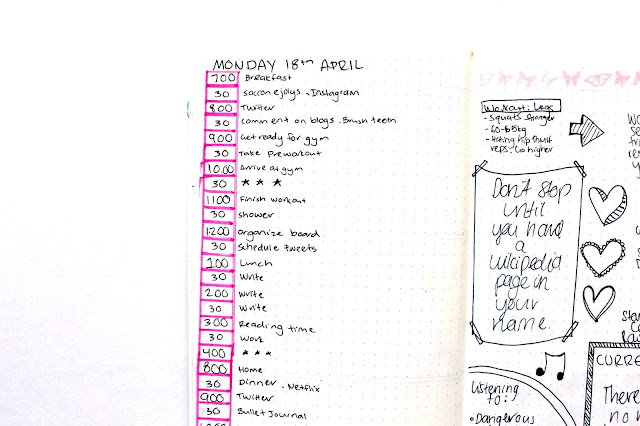 MONDAY 18th APRIL
700 Breakfast
30 saccone jolys . Instagram
800 Twitter
30 comment on blogs . Brush teeth
900 Get ready for gym
30 Take preworkout
10.00 Arrive at gym
30 ★ ★ ★
1100 Finish workout
30 shower
1200 organize board
30 schedule tweets
100 Lunch
30 Write
200 Write
30 Write
300 Reading time
30 Work
400 ★ ★ ★
800 Home
30 Dinner . Netflix
900 Twitter
30 Bullet Journal
Workout: Legs
- Squats
- 60-
reps. Go higher
Don't stop
until
you have
a
wikipedia
page in
your
name.
Listening
to:
• Dangerous
CURRE
There
no